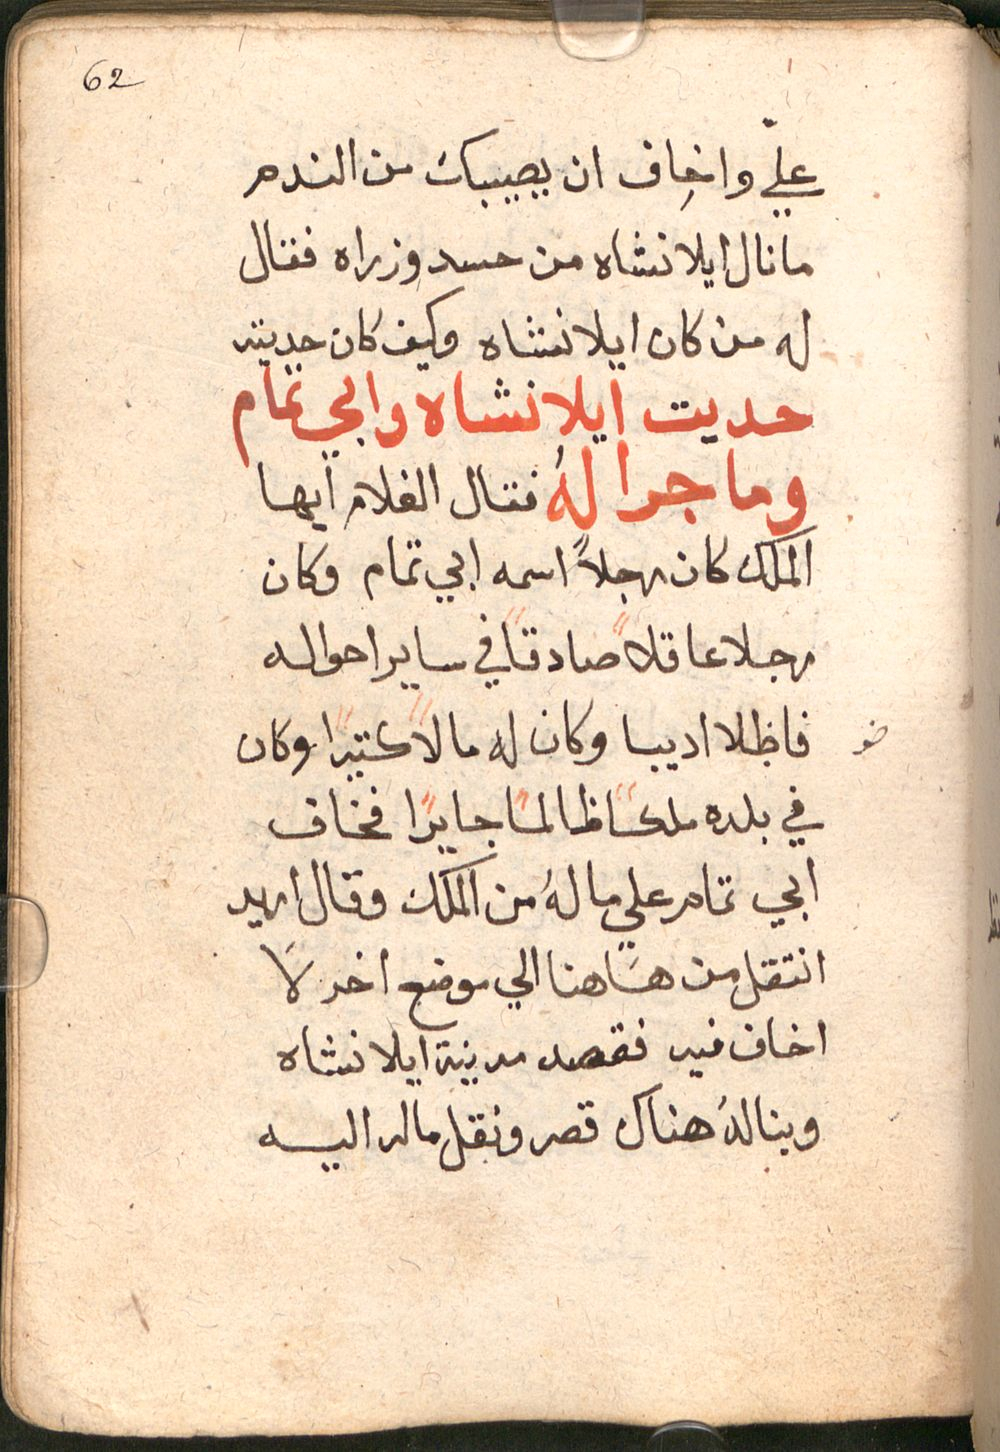 62
عليّ واخاف ان يصيبك من الندم
ما نال ايلانشاه من حسد وزراه فقال
له من كان ايلانشاه وكيف كان حديته
حديت ايلانشاه وابي تمام
وما جرا لهُ فقال الغلام ايها
الملك كان رجلاً اسمه ابي تمام وكان
رجلا عاقلاً صادقاً في ساير احواله
فاظلا اديبا وكان له مالاً كتيراً وكان
ضو
في بلده ملكاً ظالماً جايراً فخاف
ابي تمام علي ما لهُ من الملك وقال اريد
انتقل من هاهنا الي موضع اخر لا
اخاف فيه فقصد مدينة ايلانشاه
وبنا لهُ هناك قصر ونقل ماله اليه